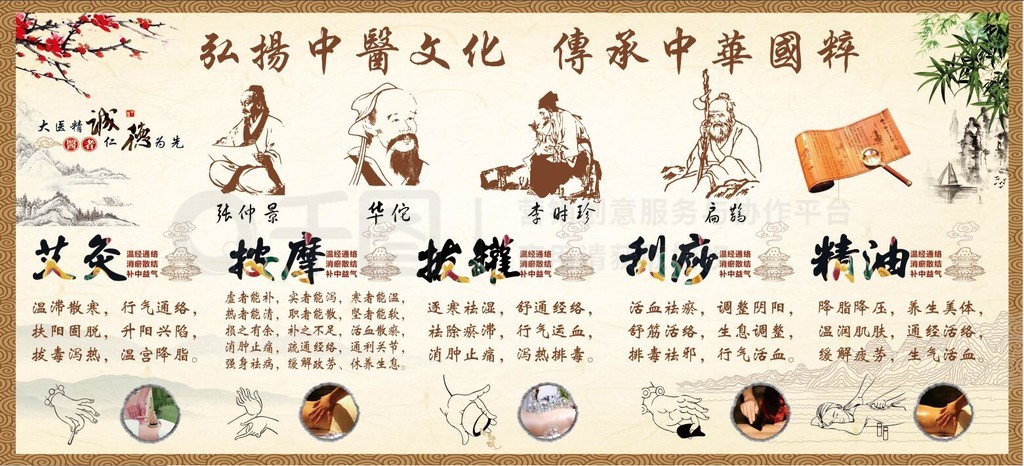 弘揚中醫文化 傳承中華國粹
大医精诚
醫者仁德为先
张仲景
华佗
李时珍
扁鹊
艾灸
温经通络
消瘀散结
补中益气
温滞散寒，行气通络，
扶阳固脱，升阳兴陷，
拔毒泻热，温宫降脂。
按摩
温经通络
消瘀散结
补中益气
虚者能补，实者能泻，寒者能温，
热者能清，职者能散，坚者能软，
损之有余，补之不足，活血散瘀，
消肿止痛，疏通经络，通利关节，
强身祛病，缓解政劳、休养生息。
拔罐
温经通络
消瘀散结
补中益气
逐寒祛湿，舒通经络，
祛除瘀滞，行气运血，
消肿止痛，泻热排毒。
刮痧
温经通络
消瘀散结
补中益气
活血祛瘀，调整阴阳，
舒筋活络，生息调整，
排毒祛邪，行气活血。
精油
温经通络
消瘀散结
补中益气
降脂降压，养生美体，
温润肌肤，通经活络，
缓解疲劳，生气活血。